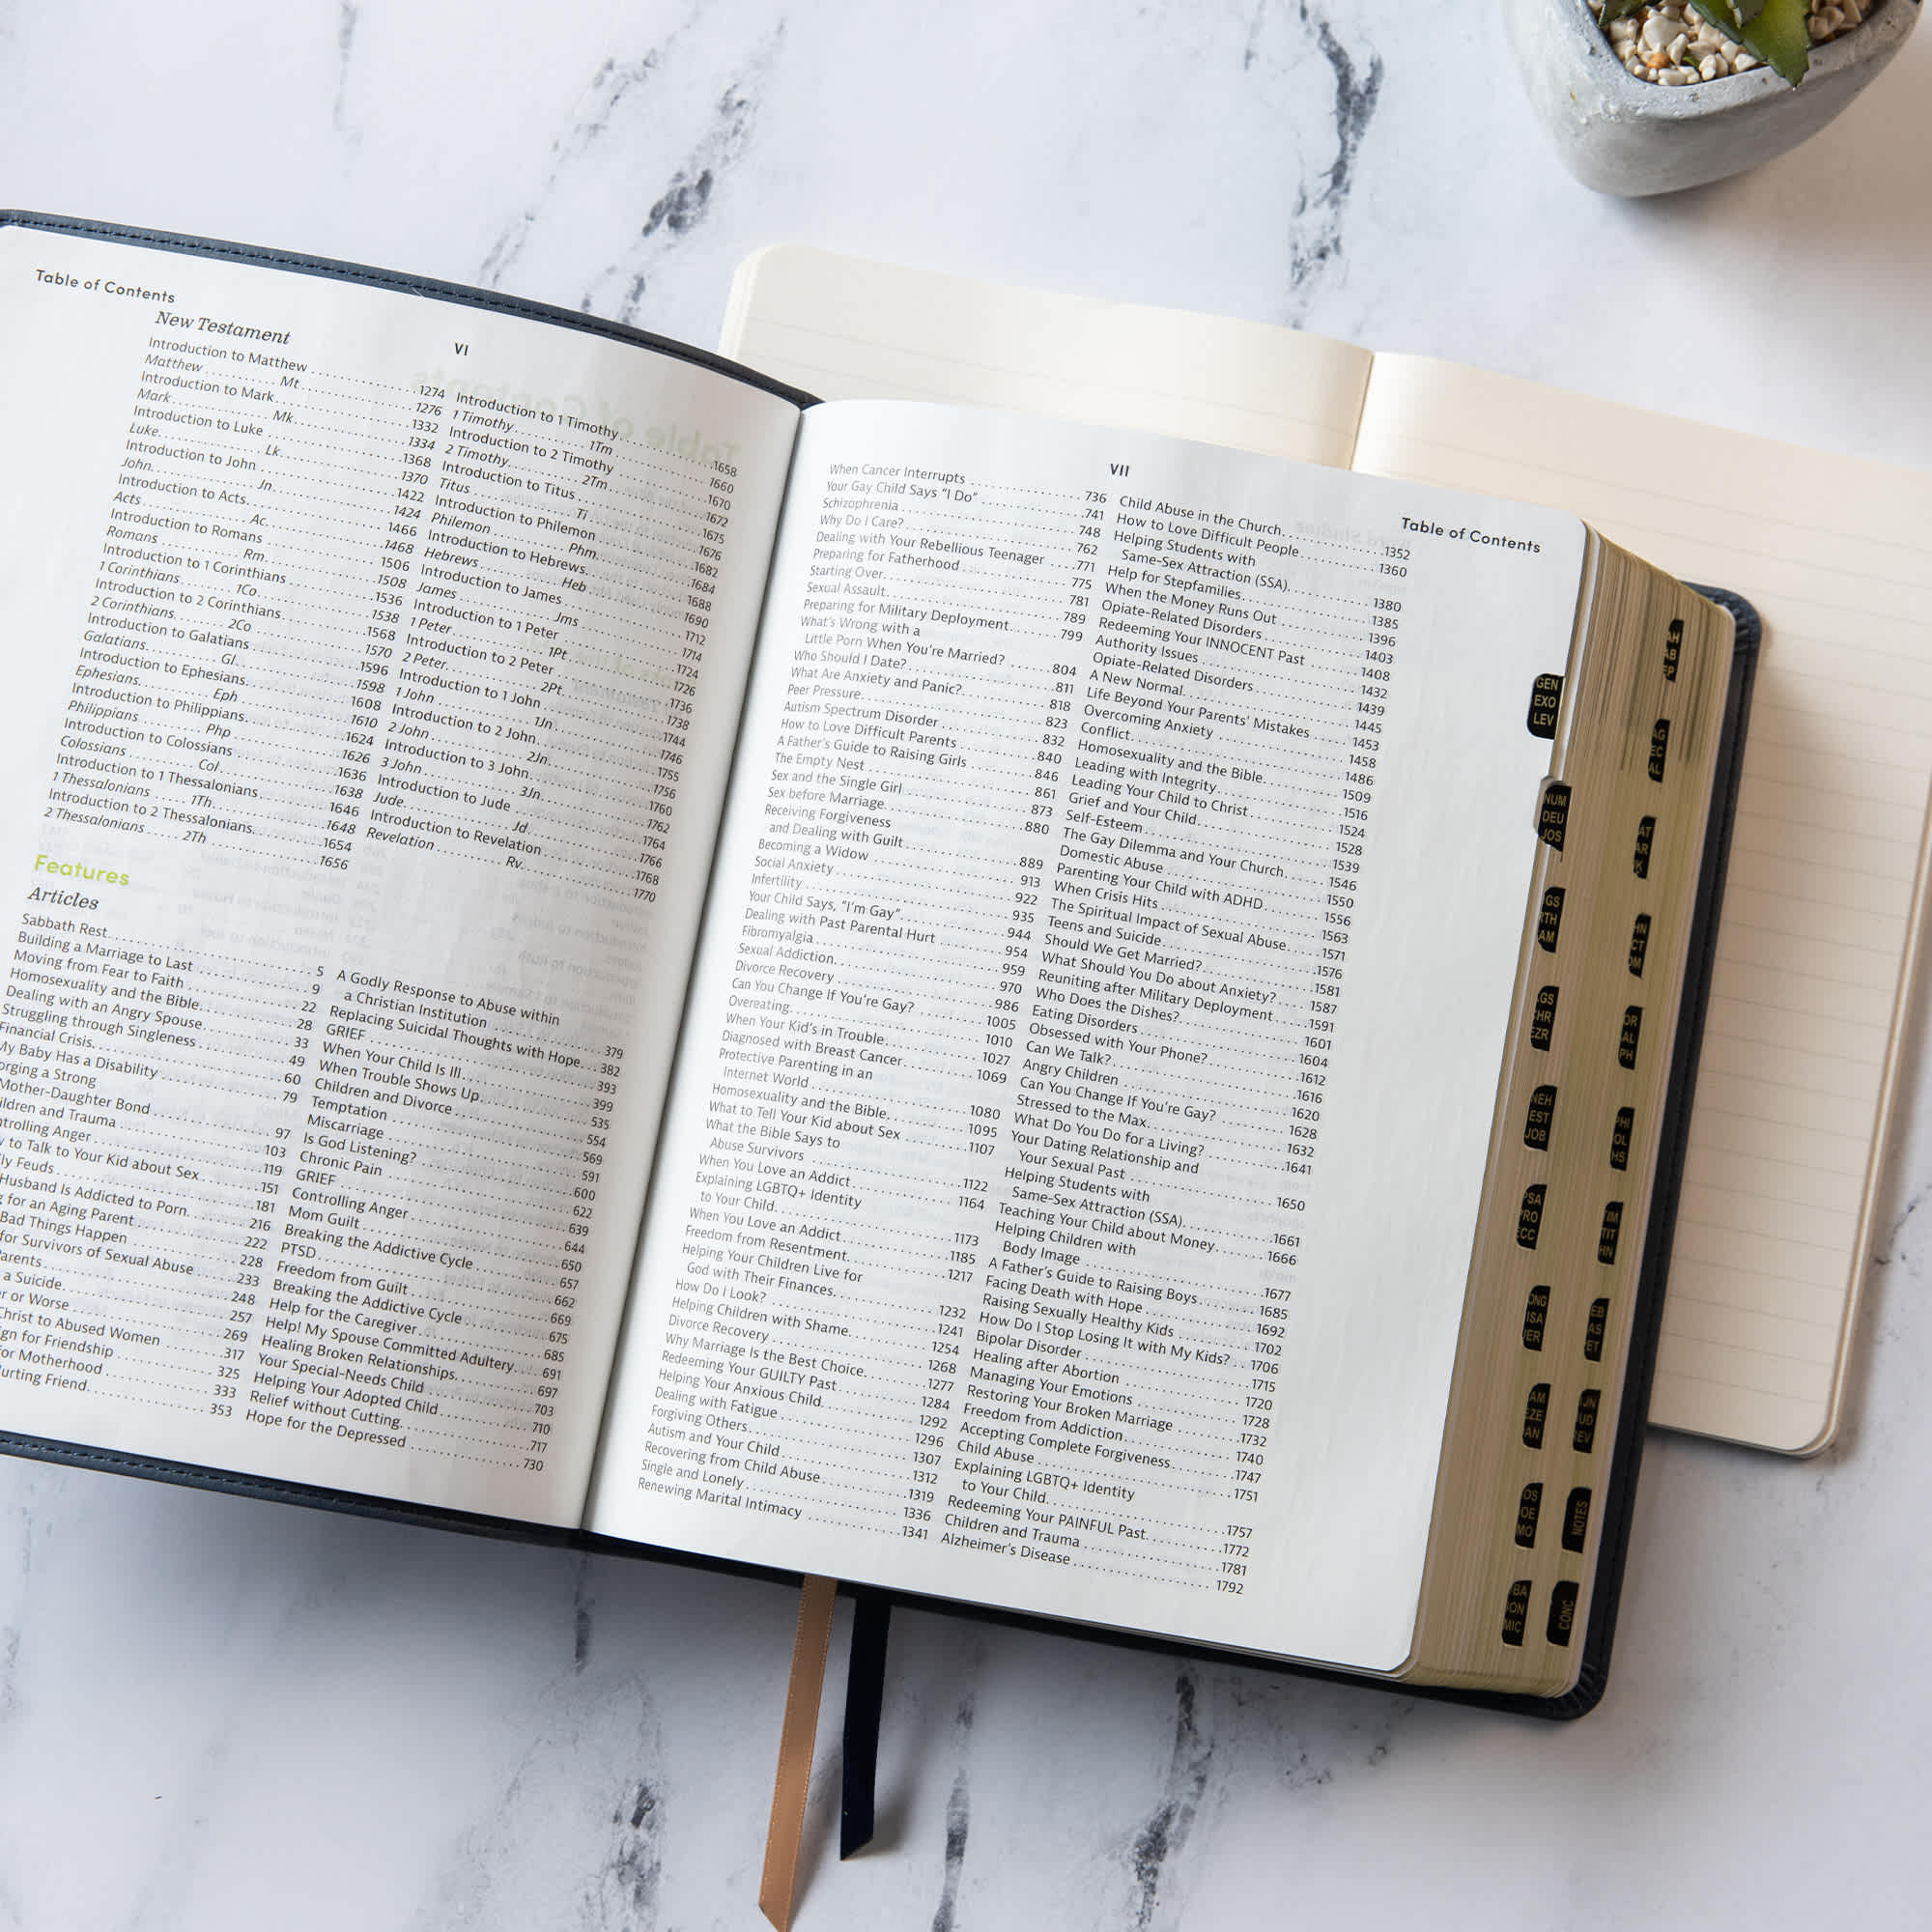 Table of Contents
VI
New Testament
Introduction to Matthew 1274
Matthew Mt 1276
Introduction to Mark 1332
Mark Mk 1334
Introduction to Luke 1368
Luke Lk 1370
Introduction to John 1422
John Jn 1424
Introduction to Acts 1466
Acts Ac 1468
Introduction to Romans 1506
Romans Rm 1508
Introduction to 1 Corinthians 1536
1 Corinthians 1Co 1538
Introduction to 2 Corinthians 1568
2 Corinthians 2Co 1570
Introduction to Galatians 1596
Galatians Gl 1598
Introduction to Ephesians 1608
Ephesians Eph 1610
Introduction to Philippians 1624
Philippians Php 1626
Introduction to Colossians 1636
Colossians Col 1638
Introduction to 1 Thessalonians 1646
1 Thessalonians 1Th 1648
Introduction to 2 Thessalonians 1654
2 Thessalonians 2Th 1656
Introduction to 1 Timothy 1658
1 Timothy 1Tm 1660
Introduction to 2 Timothy 1670
2 Timothy 2Tm 1672
Introduction to Titus 1675
Titus Ti 1676
Introduction to Philemon 1682
Philemon Phm 1684
Introduction to Hebrews 1688
Hebrews Heb 1690
Introduction to James 1712
James Jms 1714
Introduction to 1 Peter 1724
1 Peter 1Pt 1726
Introduction to 2 Peter 1736
2 Peter 2Pt 1738
Introduction to 1 John 1744
1 John 1Jn 1746
Introduction to 2 John 1755
2 John 2Jn 1756
Introduction to 3 John 1760
3 John 3Jn 1762
Introduction to Jude 1764
Jude Jd 1766
Introduction to Revelation 1768
Revelation Rv 1770
Features
Articles
Sabbath Rest 5
Building a Marriage to Last 9
Moving from Fear to Faith 22
Homosexuality and the Bible 28
Dealing with an Angry Spouse 33
Struggling through Singleness 49
Financial Crisis 60
My Baby Has a Disability 79
a Strong
Mother-Daughter Bond 97
and Trauma 103
Anger 119
to Talk to Your Kid about Sex 151
Feuds 181
Husband Is Addicted to Porn 216
for an Aging Parent 222
Bad Things Happen 228
for Survivors of Sexual Abuse 233
248
a Suicide 257
or Worse 269
Christ to Abused Women 317
for Friendship 325
for Motherhood 333
Friend 353
A Godly Response to Abuse within
a Christian Institution 379
Replacing Suicidal Thoughts with Hope 382
GRIEF 393
When Your Child Is Ill 399
When Trouble Shows Up 535
Children and Divorce 554
Temptation 569
Miscarriage 591
Is God Listening? 600
Chronic Pain 622
GRIEF 639
Controlling Anger 644
Mom Guilt 650
Breaking the Addictive Cycle 657
PTSD 662
Freedom from Guilt 669
Breaking the Addictive Cycle 675
Help for the Caregiver 685
Help! My Spouse Committed Adultery 691
Healing Broken Relationships 697
Your Special-Needs Child 703
Helping Your Adopted Child 710
Relief without Cutting 717
Hope for the Depressed 730
VII
Table of Contents
When Cancer Interrupts 736
Your Gay Child Says "I Do" 741
Schizophrenia 748
Why Do I Care? 762
Dealing with Your Rebellious Teenager 771
Preparing for Fatherhood 775
Starting Over 781
Sexual Assault 789
Preparing for Military Deployment 799
What's Wrong with a
Little Porn When You're Married? 804
Who Should I Date? 811
What Are Anxiety and Panic? 818
Peer Pressure 823
Autism Spectrum Disorder 832
How to Love Difficult Parents 840
A Father's Guide to Raising Girls 846
The Empty Nest 861
Sex and the Single Girl 873
Sex before Marriage 880
Receiving Forgiveness
and Dealing with Guilt 889
Becoming a Widow 913
Social Anxiety 922
Infertility 935
Your Child Says, "I'm Gay" 944
Dealing with Past Parental Hurt 954
Fibromyalgia 959
Sexual Addiction 970
Divorce Recovery 986
Can You Change If You're Gay? 1005
Overeating 1010
When Your Kid's in Trouble 1027
Diagnosed with Breast Cancer 1069
Protective Parenting in an
Internet World 1080
Homosexuality and the Bible 1095
What to Tell Your Kid about Sex 1107
What the Bible Says to
Abuse Survivors 1122
When You Love an Addict 1164
Explaining LGBTQ+ Identity
to Your Child 1173
When You Love an Addict 1185
Freedom from Resentment 1217
Helping Your Children Live for
God with Their Finances 1232
How Do I Look? 1241
Helping Children with Shame 1254
Divorce Recovery 1268
Why Marriage Is the Best Choice 1277
Redeeming Your GUILTY Past 1284
Helping Your Anxious Child 1292
Dealing with Fatigue 1296
Forgiving Others 1307
Autism and Your Child 1312
Recovering from Child Abuse 1319
Single and Lonely 1336
Renewing Marital Intimacy 1341
Child Abuse in the Church 1352
How to Love Difficult People 1360
Helping Students with
Same-Sex Attraction (SSA) 1380
Help for Stepfamilies 1385
When the Money Runs Out 1396
Opiate-Related Disorders 1403
Redeeming Your INNOCENT Past 1408
Authority Issues 1432
Opiate-Related Disorders 1439
A New Normal 1445
Life Beyond Your Parents' Mistakes 1453
Overcoming Anxiety 1458
Conflict 1486
Homosexuality and the Bible 1509
Leading with Integrity 1516
Leading Your Child to Christ 1524
Grief and Your Child 1528
Self-Esteem 1539
The Gay Dilemma and Your Church 1546
Domestic Abuse 1550
Parenting Your Child with ADHD 1556
When Crisis Hits 1563
The Spiritual Impact of Sexual Abuse 1571
Teens and Suicide 1576
Should We Get Married? 1581
What Should You Do about Anxiety? 1587
Reuniting after Military Deployment 1591
Who Does the Dishes? 1601
Eating Disorders 1604
Obsessed with Your Phone? 1612
Can We Talk? 1616
Angry Children 1620
Can You Change If You're Gay? 1628
Stressed to the Max 1632
What Do You Do for a Living? 1641
Your Dating Relationship and
Your Sexual Past 1650
Helping Students with
Same-Sex Attraction (SSA) 1661
Teaching Your Child about Money 1666
Helping Children with
Body Image 1677
A Father's Guide to Raising Boys 1685
Facing Death with Hope 1692
Raising Sexually Healthy Kids 1702
How Do I Stop Losing It with My Kids? 1706
Bipolar Disorder 1715
Healing after Abortion 1720
Managing Your Emotions 1728
Restoring Your Broken Marriage 1732
Freedom from Addiction 1740
Accepting Complete Forgiveness 1747
Child Abuse 1751
Explaining LGBTQ+ Identity
to Your Child 1757
Redeeming Your PAINFUL Past 1772
Children and Trauma 1781
Alzheimer's Disease 1792
GEN
EXO
LEV
NUM
DEU
JOS
NEH
EST
JOB
NOTES
CONC